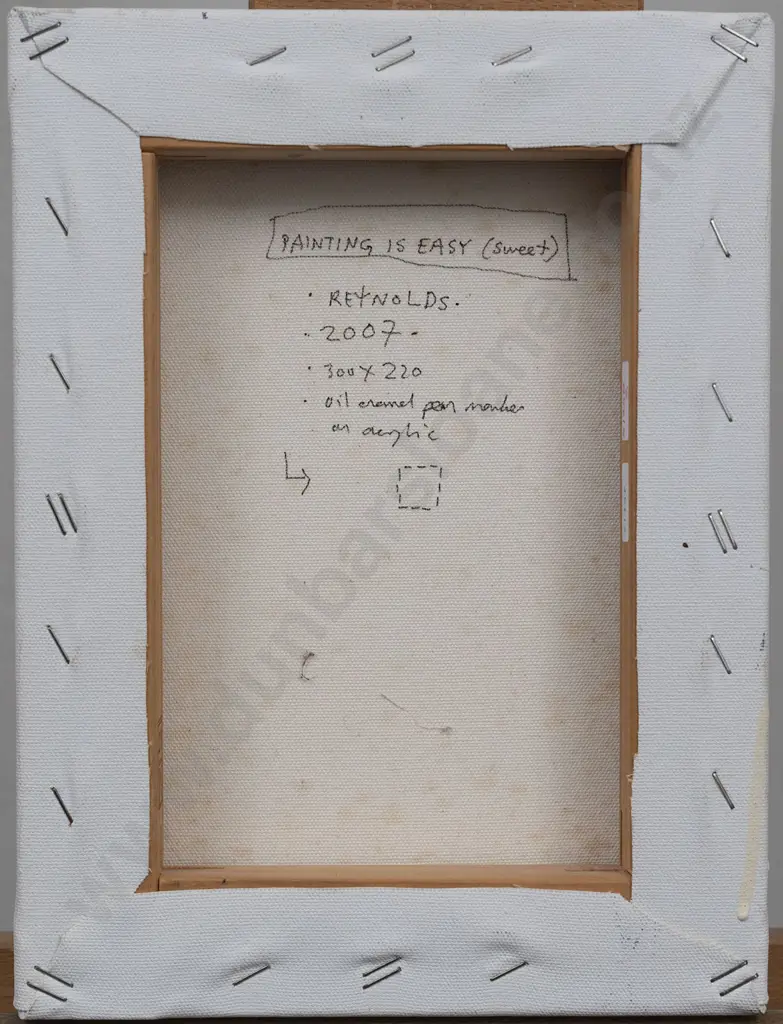 PAINTING IS EASY (sweet)
· REYNOLDS.
· 2007 -
· 300 X 220
· oil enamel pen marker
on acrylic